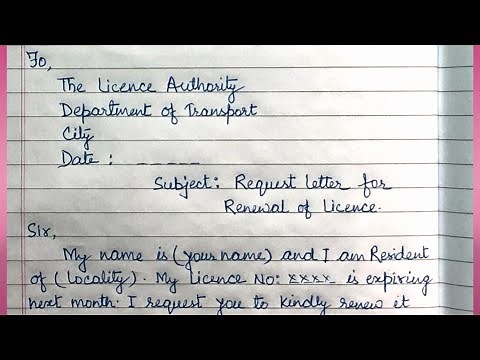 To,
The Licence Authority
Department of Transport
City
Date : _ _ _ _ _
Subject: Request letter for
Renewal of Licence.
Sir,
My name is (your name) and I am Resident
of (Locality). My Licence No: xxxx is expiring
next month. I request you to kindly renew it